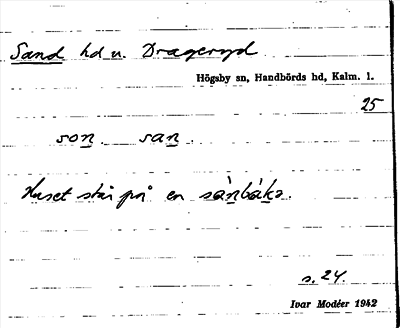 Sand hd u. Drageryd
Högsby sn, Handbörds hd, Kalm. l.
25
son. san.
Huset står på en sànbákə.
s. 24.
Ivar Modéer 1942